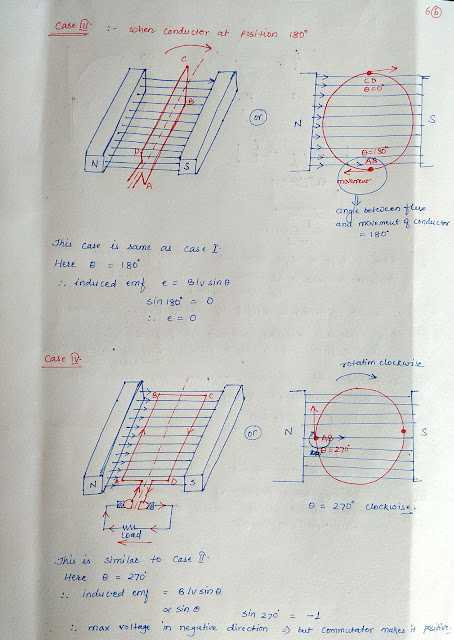 6(b)
Case III :- when conductor at position 180°
C
B
D
A
N
S
or
CD
θ=0°
N
S
θ=180°
AB
movement
angle between flux
and movement of conductor
= 180°
This case is same as case I.
Here θ = 180°
∴ induced emf e = Blv sinθ
sin 180° = 0
∴ e = 0
Case IV.
rotation clockwise
B
C
A
D
N
S
Load
or
N
AB
S
θ=270°
θ = 270° clockwise.
This is similar to case II.
Here θ = 270°
∴ induced emf = Blv sinθ
∝ sin θ
sin 270° = -1
∴ max voltage in negative direction ⇒ but commutator makes it positive